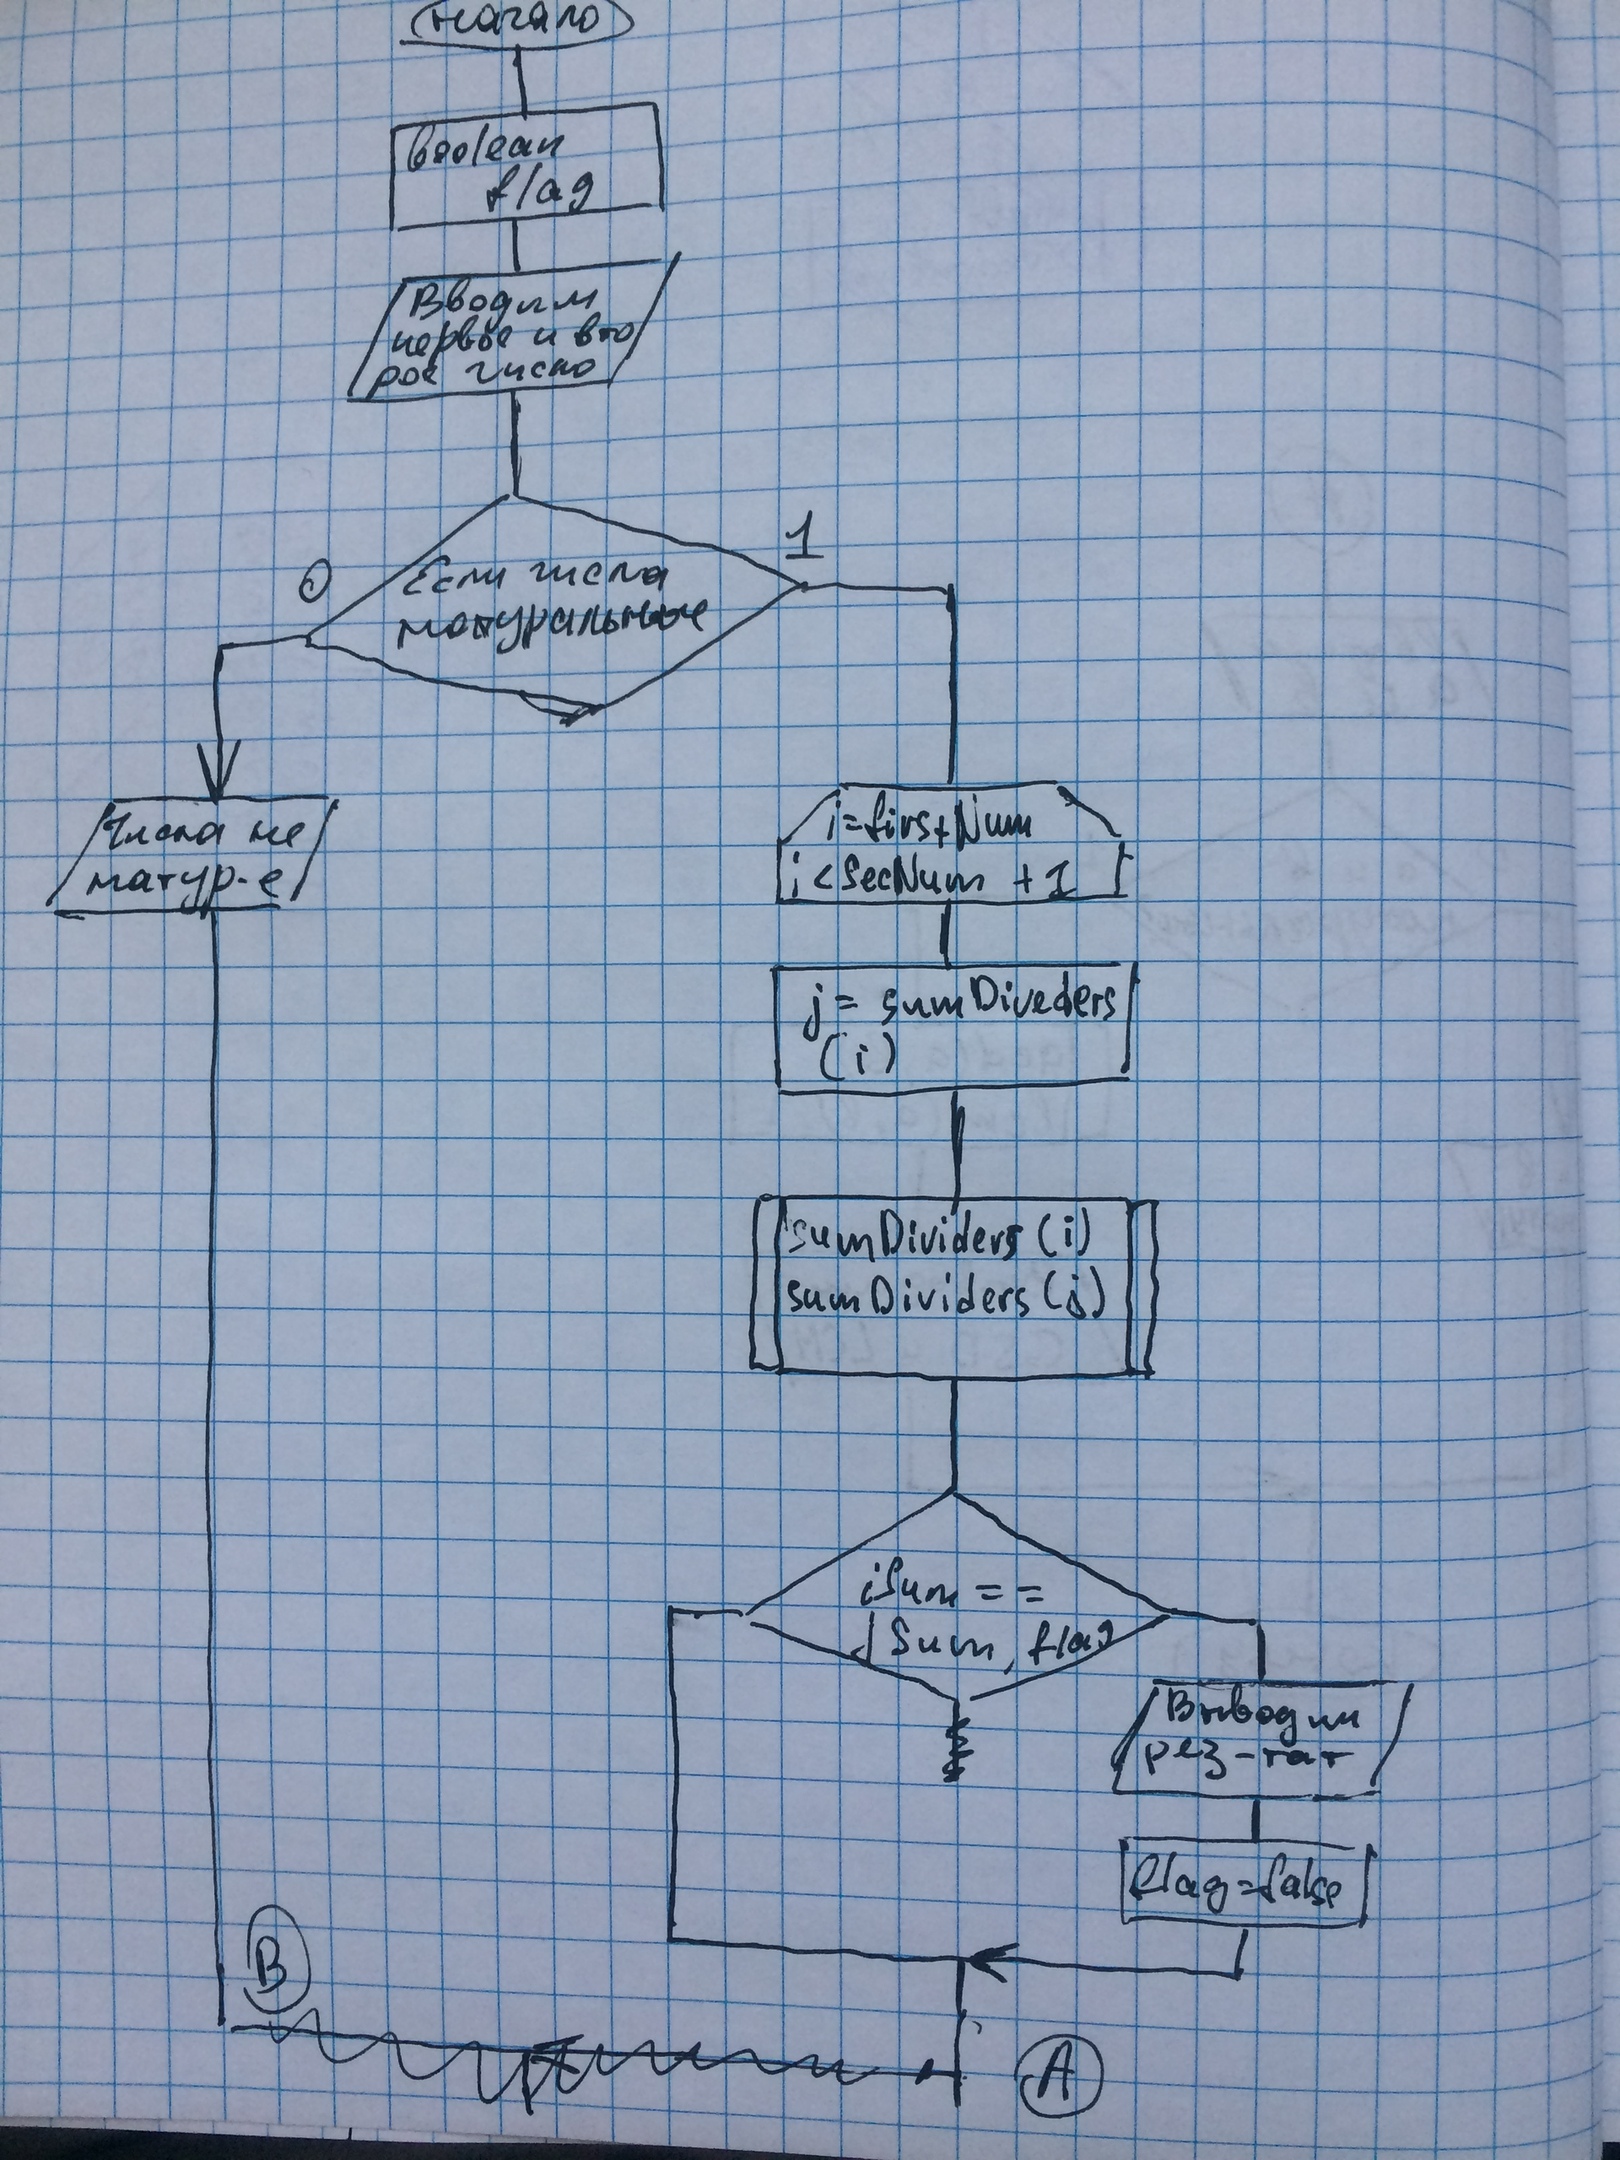 начало
boolean
flag
Вводим
первое и вто
рое число
0
1
Если числа
натуральные
Числа не
натур-е
i=firstNum
i<SecNum +1
j = sumDiveders
(i)
sumDividers (i)
sumDividers (j)
iSum ==
jSum, flag
Выводим
рез-тат
flag=false
B
A